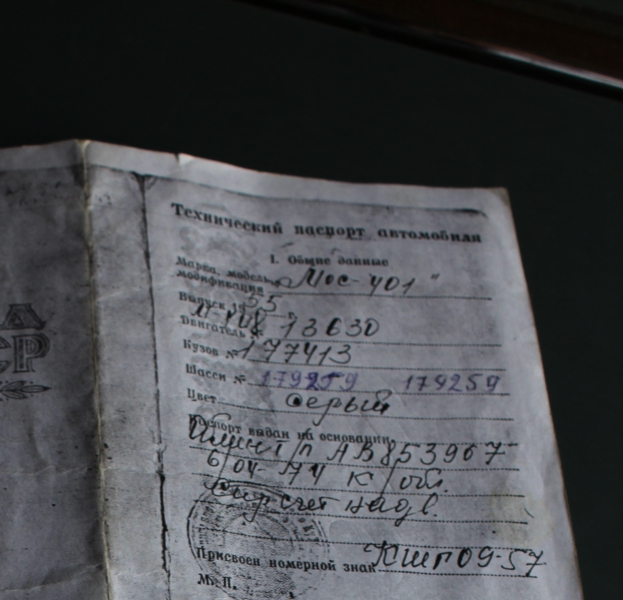 А
СР
Технический паспорт автомобиля
I. Общие данные
Марка, модель,
модификация „Мос-401"
Выпуск 1955 г.
Двигатель № 13630
Кузов № 177413
Шасси № 179259 179259
Цвет серый
Паспорт выдан на основании
п АВ853967
6/04-74
счет
Присвоен номерной знак Кшг09-57
М. П.